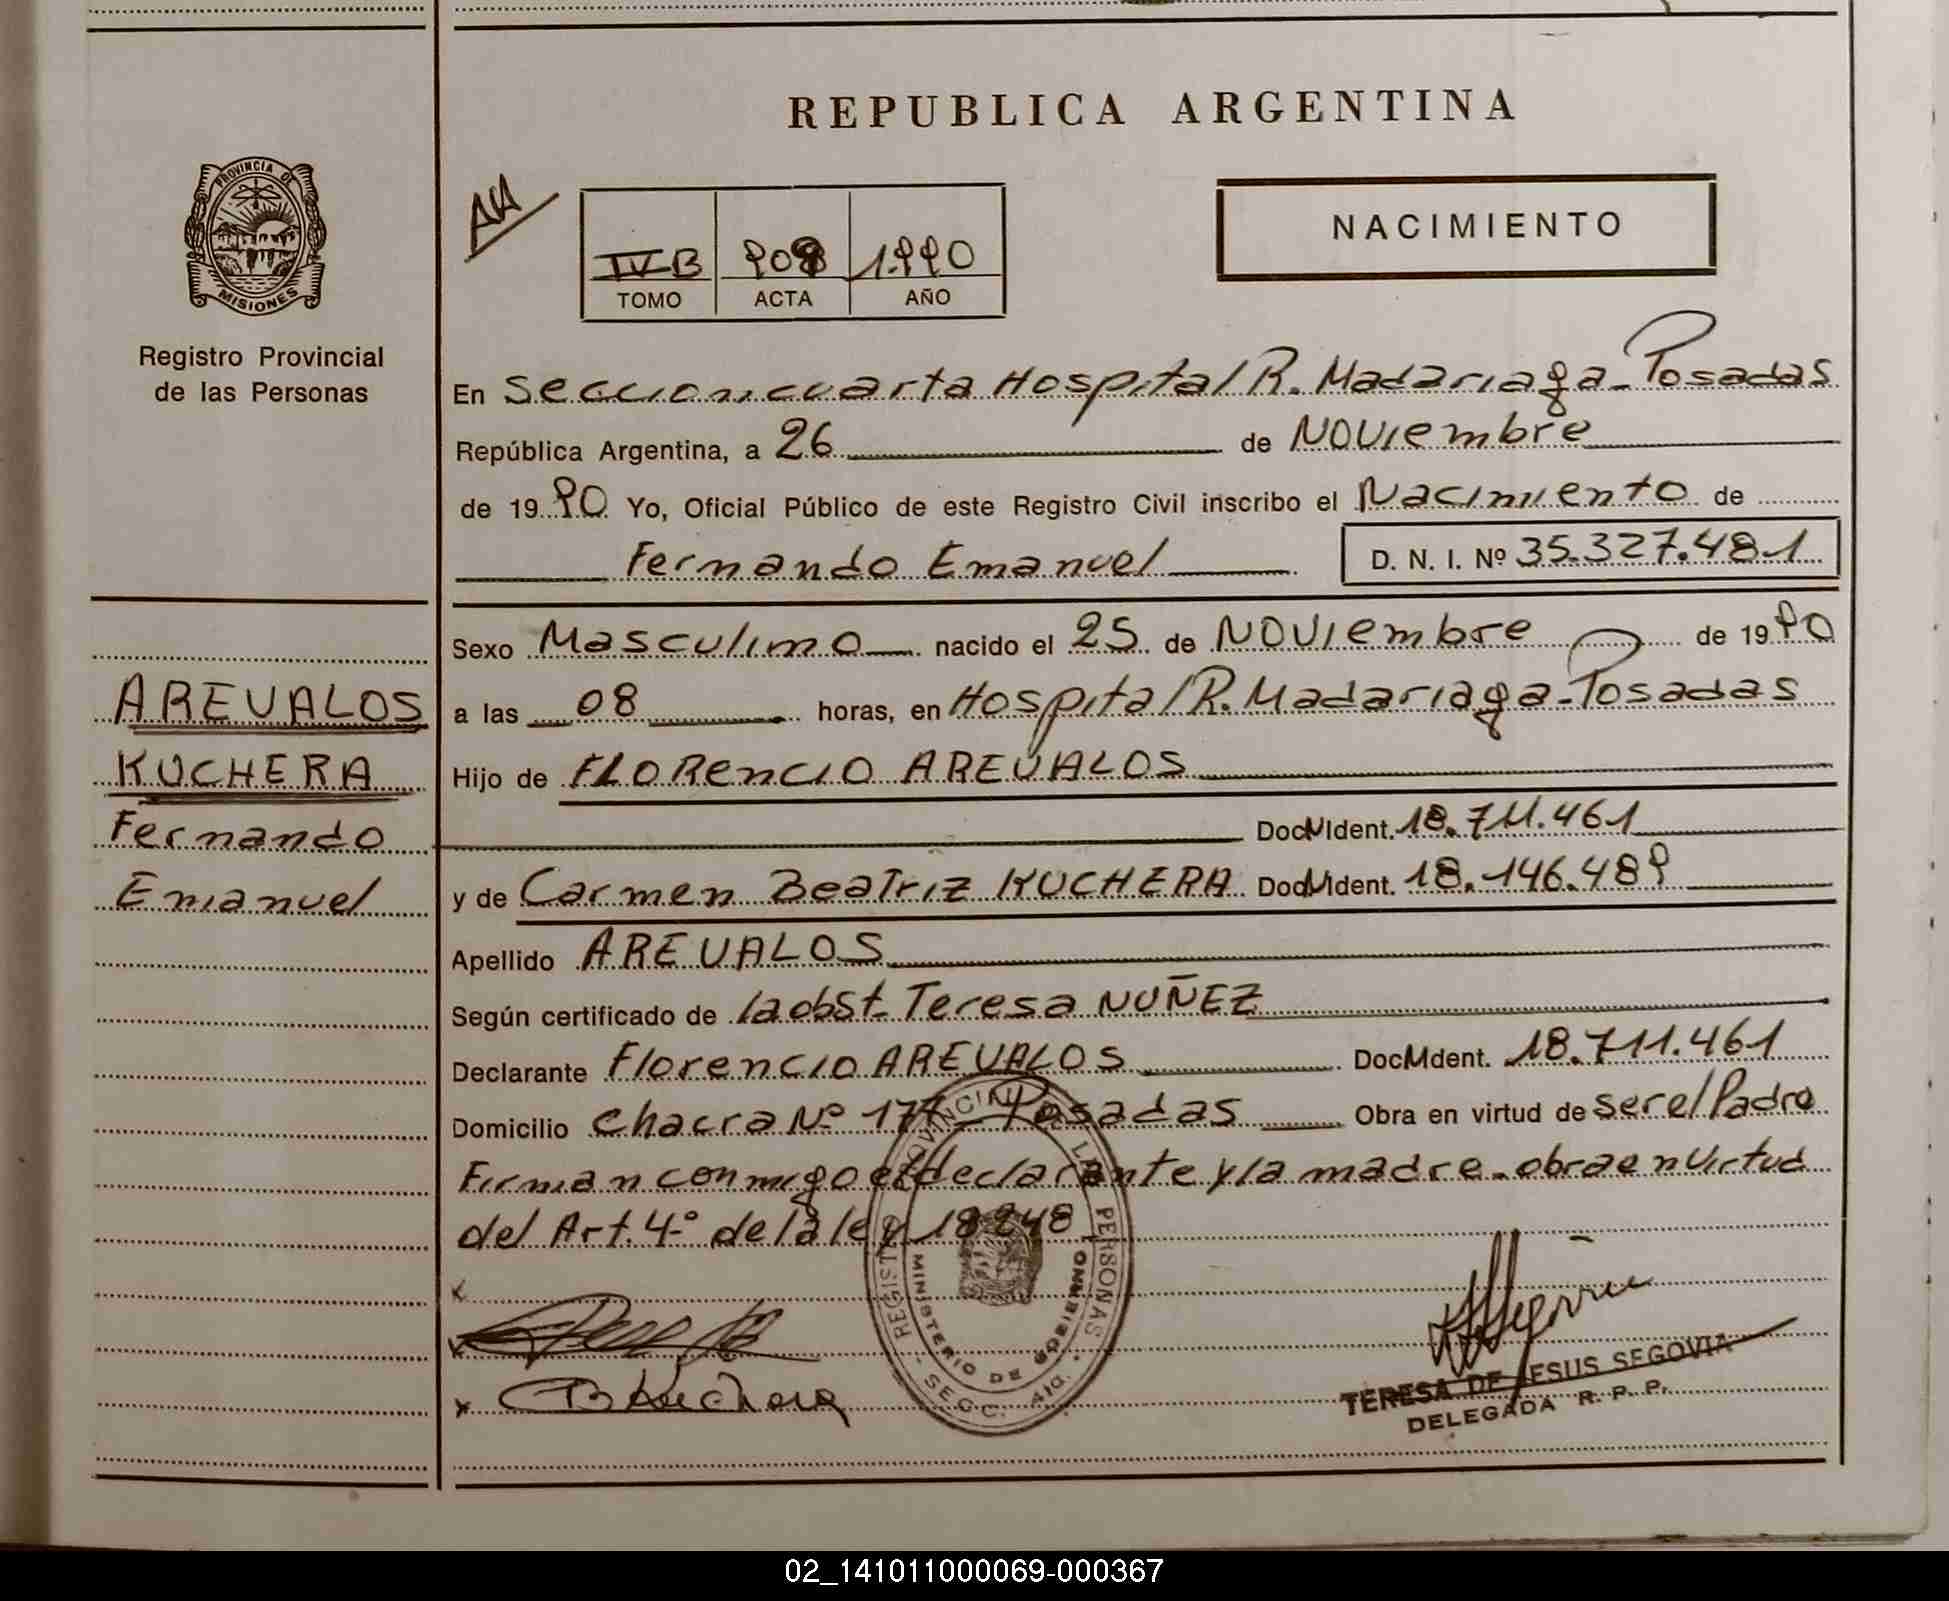 REPUBLICA ARGENTINA
PROVINCIA DE
MISIONES
Registro Provincial
de las Personas
NACIMIENTO
IV-B 908 1.990
TOMO ACTA AÑO
En Seccion cuarta Hospital R. Madariaga - Posadas
República Argentina, a 26 de Noviembre
de 1990 Yo, Oficial Público de este Registro Civil inscribo el Nacimiento de
Fernando Emanuel D. N. I. Nº 35.327.481
AREVALOS
KUCHERA
Fernando
Emanuel
Sexo Masculino nacido el 25 de Noviembre de 1990
a las 08 horas, en Hospital R. Madariaga - Posadas
Hijo de FLORencio AREVALOS
Doc. Ident. 18.711.461
y de Carmen BeaTriz KUCHERA Doc. Ident. 18.146.489
Apellido AREVALOS
Según certificado de la obst. Teresa NUÑEZ
Declarante Florencio AREVALOS Doc. Ident. 18.711.461
Domicilio Chacra Nº 177 - Posadas Obra en virtud de ser el Padre
Firman conmigo el declarante y la madre - obra en virtud
del Art. 4º de la ley 18248
x
x
x B Kuchera
REGISTRO PROVINCIAL DE LAS PERSONAS
MINISTERIO DE GOBIERNO
SECC. 4ta.
TERESA DE JESUS SEGOVIA
DELEGADA R. P. P.
02_141011000069-000367